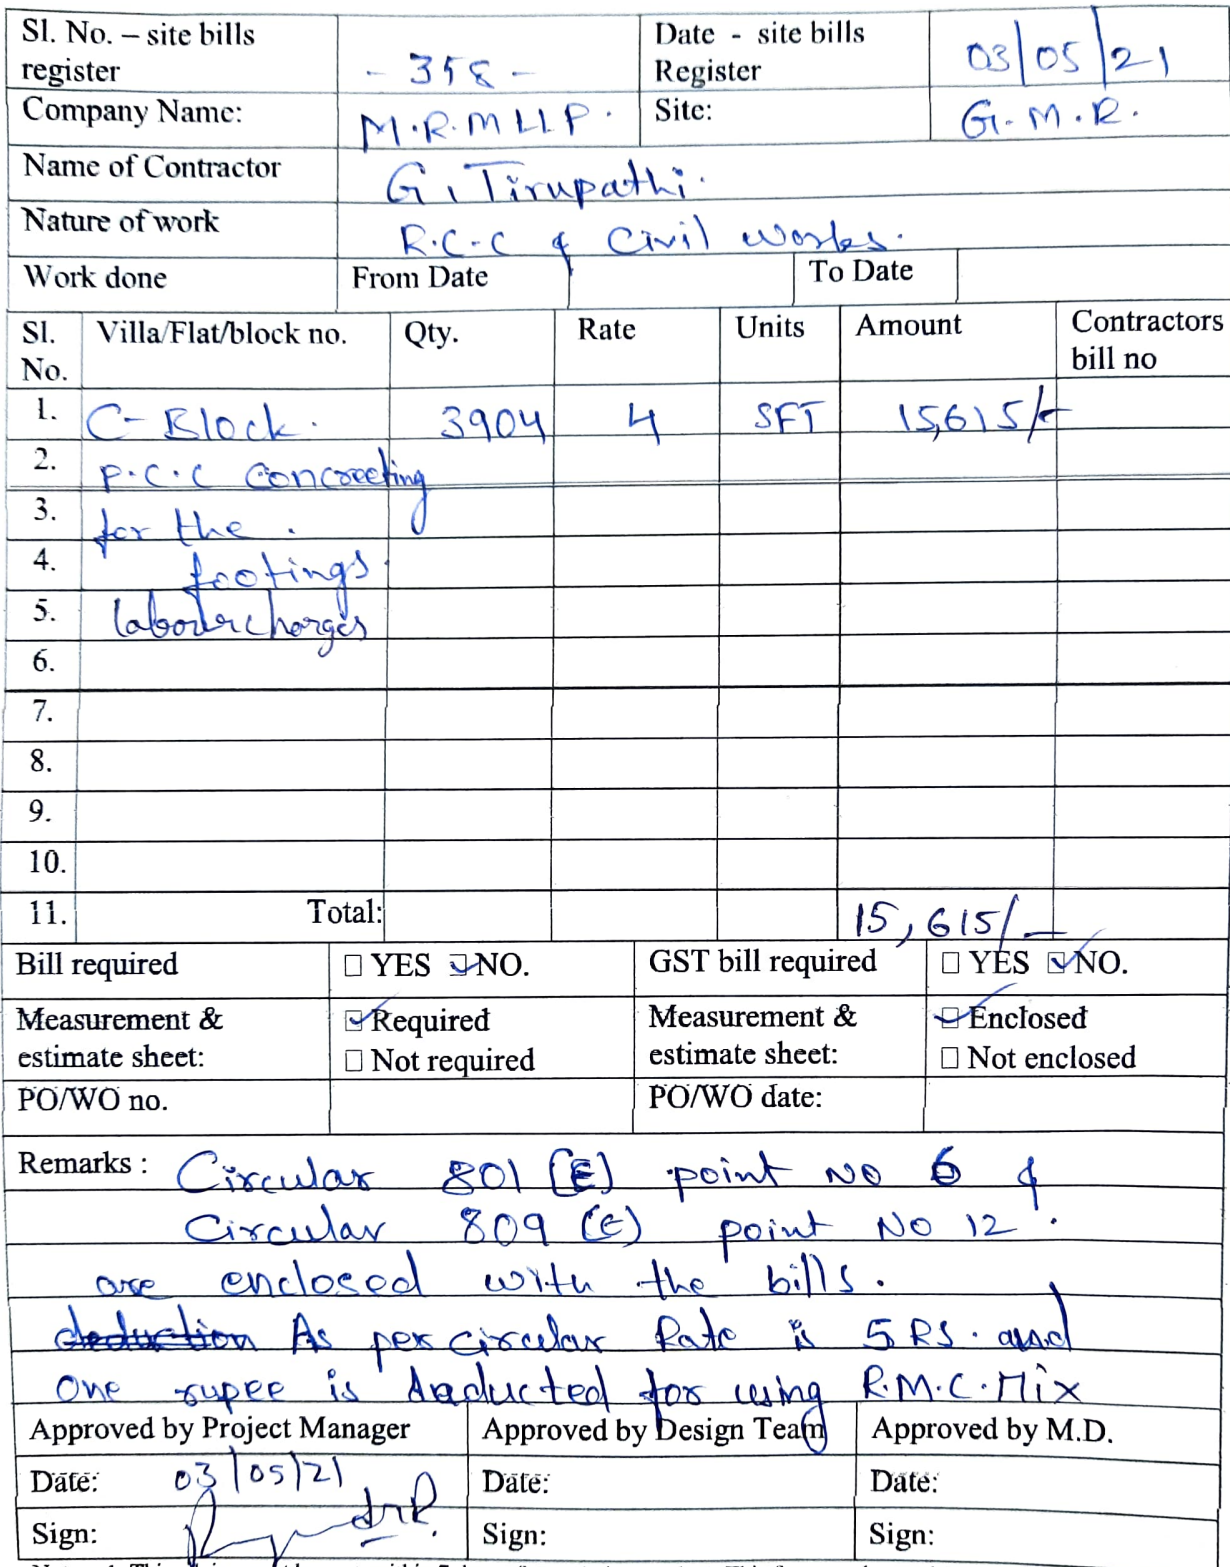 Sl. No. – site bills register - 358 - Date - site bills Register 03/05/21
Company Name: M.R.M LLP. Site: G.M.R.
Name of Contractor G. Tirupathi.
Nature of work R.C.C & Civil works.
Work done From Date To Date
Sl. No. Villa/Flat/block no. Qty. Rate Units Amount Contractors bill no
1. C-Block. 3904 4 SFT 15,615/-
2. P.C.C Concreeting
3. for the .
4. footings.
5. labour charges
6.
7.
8.
9.
10.
11. Total: 15,615/-
Bill required YES NO. GST bill required YES NO.
Measurement & estimate sheet: Required Not required Measurement & estimate sheet: Enclosed Not enclosed
PO/WO no. PO/WO date:
Remarks : Circular 801 (E) point No 6 &
Circular 809 (E) point No 12.
are enclosed with the bills.
deduction As per circular Rate is 5 RS. and
one rupee is deducted for using R.M.C. Mix
Approved by Project Manager Approved by Design Team Approved by M.D.
Date: 03/05/21 Date: Date:
Sign: Sign: Sign: